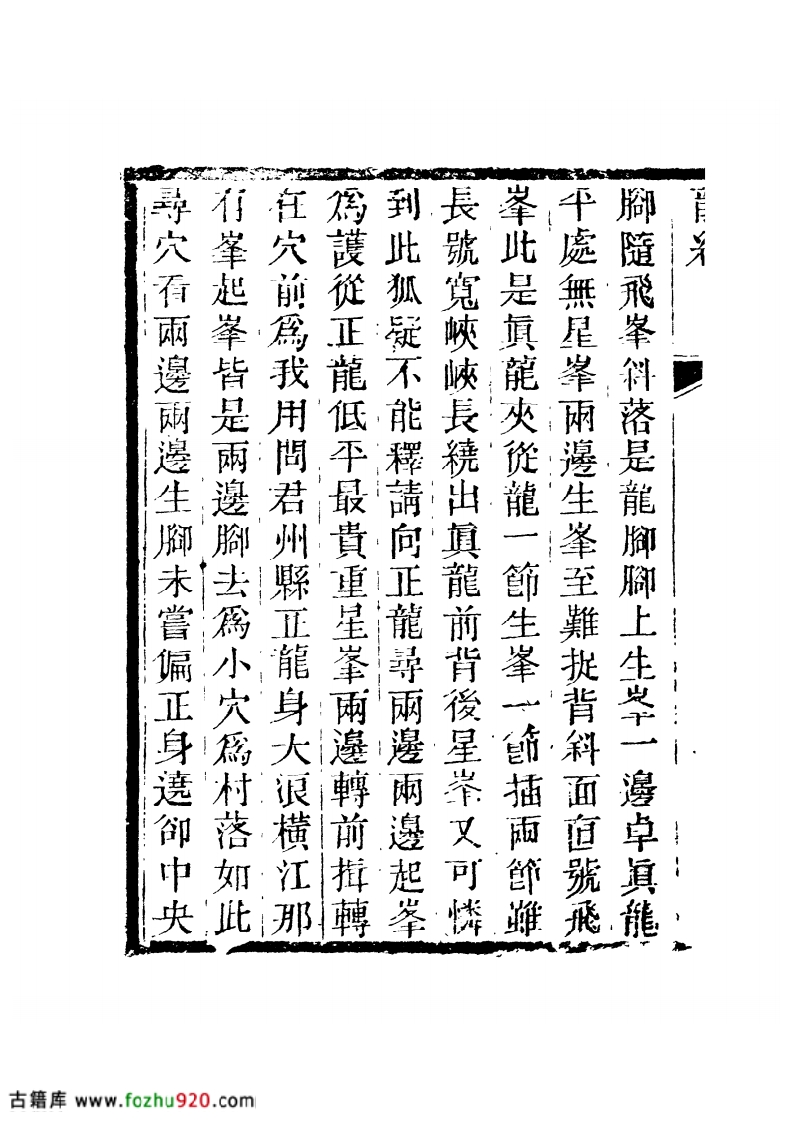 腳隨飛峯斜落是龍腳腳上生峯一邊卓眞龍
平處無星峯兩邊生峯至難捉背斜面直號飛
峯此是眞龍夾從龍一節生峯一節插兩節雖
長號寬峽峽長繞出眞龍前背後星峯又可憐
到此狐疑不能釋請向正龍尋兩邊兩邊起峯
爲護從正龍低平最貴重星峯兩邊轉前揖轉
在穴前爲我用問君州縣正龍身大浪橫江那
有峯起峯皆是兩邊腳去爲小穴爲村落如此
尋穴看兩邊兩邊生腳未嘗偏正身遶卻中央
古籍库 www.fozhu920.com